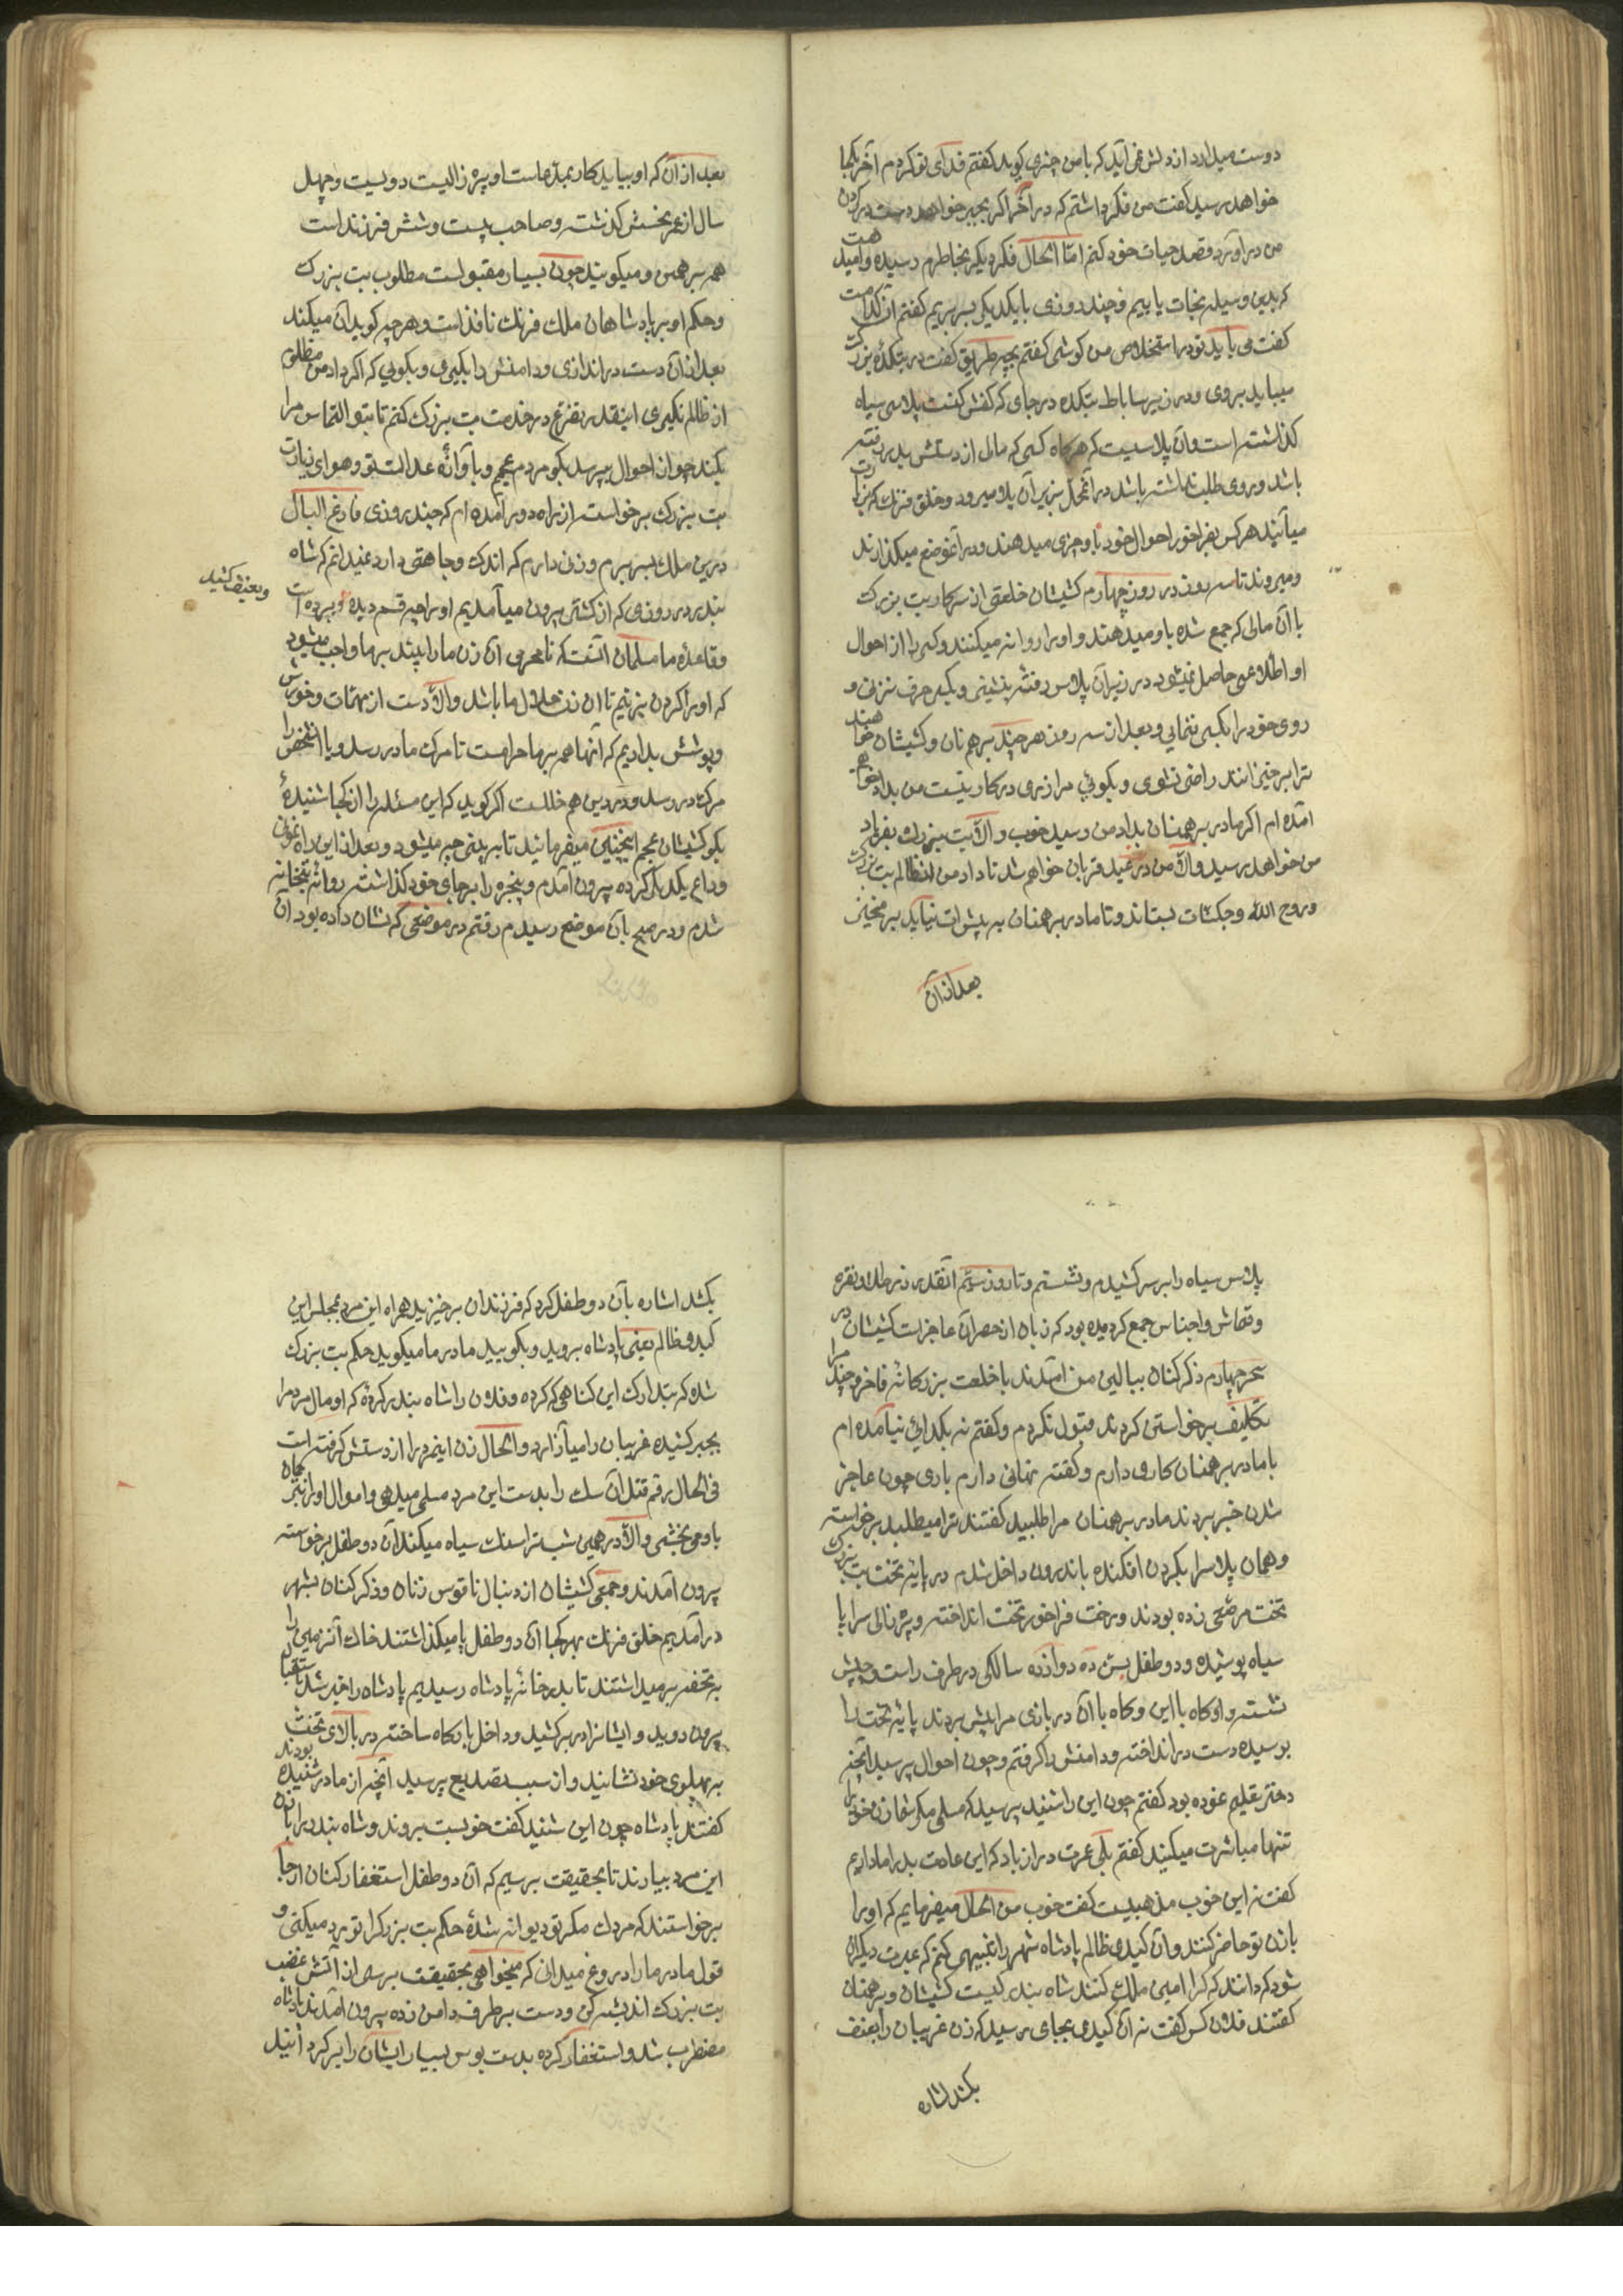 دوست میدارد از دلش نمی آید که با من چیزی کوید کفتم فدای تو کردم آخر بکجا
خواهد رسید کفت من فکر داشتم که در آخر اکر بجبر خواهد دست در کردن
من در آورد قصد حیات خود کنم امّا الحال فکر دیکر بخاطرم رسیده و امید هست
که بدین وسیله نجات یابیم و چند روزی با یکدیکر بسر بریم کفتم آن کدامست
کفت می باید تو در استخلاص من کوشی کفتم بچه طریق کفت در بتکدهٔ بزرک
میباید بروی و در زیر ساباط بتکده در جای که کفش کنست پلاسی سیاه
کذاشته است و آن پلاسیست که هرکاه کسی که مال از دستش بدر رفته
باشد و روی طلب نداشته باشد در آنمحل بزیر آن پلا میرود و خلق فرنک که بزیارت
میآیند هر کس بفراخور احوال خود باو چیزی میدهند و در آنموضع میکذارند
و میروند تا سه روز در روز چهارم کشیشان خلعتی از سرکار بت بزرک
با آن مالی که جمع شده باو میدهند و او را روانه میکنند و کسی را از احوال
او اطلاعی حاصل نمیشود در زیر آن پلاس رفته بنشینی و بکس حرف نزنی و
روی خود را بکسی ننمایی و بعد از سه روز هر چند برهمنان و کشیشان خواهند
ترا برخیزانند راضی نشوی و بکوئی مرا زری در کار نیست من بدادخواهی
آمده ام اکر مادر برهمنان بداد من رسید خوب و الّا بت بزرک بفریاد
من خواهد رسید و الّا من در عید قربان خواهم شد تا داد من از ظالم بت بزرک
و روح الله و جکشات بستاند و تا مادر برهمنان به پیش ات نیاید برمخیز
بعد از آن
بعد از آن که او بیاید کار بمدعاست او پیره زالیست دویست و چهل
سال از عمر نحسش کذشته و صاحب بیست و شش فرزند است
همه برهمن و میکویند چون بسیار مقبولست مطلوب بت بزرکت
و حکم او بر پادشاهان ملک فرنک نافذاست و هر چه کوید آن میکند
بعد از آن دست در اندازی و دامنش را بکیری و بکویی که اکر داد من مظلوم
از ظالم نکیری اینقدر تضرع در خدمت بت بزرک کنم تا بتو التماس مرا
بکند چو از احوال بپرسد بکو مردم عجم و بآوازهٔ عدالت تو و هوای زیارت
بت بزرک برخواسته از راه دور آمده ام که چند روزی فارغ البال
درین ملک بسر برم و زنی دارم که اندک وجاهتی دارد نمیدانم که شاه
بندر در روزی که از کشتی بیرون میآمدیم او را چه قسم دیده و برده است
و بعنف کشید
و قاعدهٔ ما مسلمان آنست که نامحرمی آن زن ما را ببیند بر ما واجب میشود
که او را کردن بزنیم تا آن زن حلال ما باشد و الّا دست از مهمّات و خورش
و پوشش بداریم که آنها همه بر ما حرامست تا مرک ما در رسد و یا آنشخص را
مرک در رسد و در دین هم خللست اکر کوید که این مسئله را از کجا شنیدهٔ
بکو کشیشان عجم اینچنین میفرمایند تا ببینی چه میشود و بعد از این راه نمونی
وداع یکدیکر کرده بیرون آمدم و پنجره را بر جای خود کذاشته روانهٔ بتخانه
شدم و در صبح بآن موضع رسیدم رفتم در موضعی که نشان داده بود آن
پلاس سیاه را بر سر کشیدم و نشستم و تا روز سیّم آنقدر زر طلا و نقره
و قماش و اجناس جمع کردیده بود که زبان از حصر آن عاجز است کشیشان در
سحر چهارم ذکر کنان ببالین من آمدند با خلعت بزرکانه فاخر و چند مرا
تکلیف برخواستن کردند قبول نکردم و کفتم نه بکدائی نیامده ام
با مادر برهمنان کاری دارم و کفتنه نهانی دارم باری چون عاجز
شدن خبر بردند مادر برهمنان مرا طلبید کفتند ترا میطلبد برخواسته
و همان پلاسرا بکردن افکنده باندرون داخل شدم در پایهٔ تخت بت بزرک
تخت مرصّعی زده بودند و رخت فراخور تخت انداخته و پیره زالی سراپا
سیاه پوشیده و دو طفل بسن ده دوازده سالکی در طرف راست و چپش
نشسته و او کاه با این و کاه با آن در بازی مرا پیش بردند پایهٔ تخت را
بوسیده دست در انداخته و دامنش را کرفتم و چون احوال پرسید آنچه
دختر تعلیم نموده بود کفتم چون این را شنید پرسید که مسلمی مکر شما زن خود را
تنها مباشرت میکنید کفتم بلی عمرت دراز باد که این عادت بد را ما داریم
کفت نه این خوب مذهبیست کفت خوب من الحال میفرمایم که او را
با زن تو حاضر کنند و آن کیدی ظالم پادشاه شهر را تنبیهی کنم که عبرت دیکران
شود که دانند که کرا امین ملک کنند شاه بندر کیست کشیشان و برهمنان
کفتند فلان کس کفت نه آن کیدی بجای رسید که زن غریبان را بعنف
بکشد اشاره
بکشد اشاره بآن دو طفل کرد که فرزندان برخیزید همراه این مرد بمجلس این
کیدی ظالم یعنی پادشاه بروید و بکویید مادر ما میکوید حکم بت بزرک
شده که بتدارک این کناهی که کرده و فلان را شاه بندر کردهٔ که او مال مردم را
بجبر کشیده غریبان را میآزارد و الحال زن اینمرد را از دستش کرفته است
فی الحال رقم قتل آن سک را بدست این مرد مسلم میدهی و اموال او را بتمامه
باو می بخشی و الّا در همین شب ترا سنک سیاه میکند آن دو طفل برخوسته
بیرون آمدند و جمعی کشیشان از دنبال ناقوس زنان و ذکر کنان بشهر
در آمدیم خلق فرنک بهر کجا آن دو طفل پا میکذاشتند خاک آنزمین را
به تحفه برمیداشتند تا بدرخانهٔ پادشاه رسیدیم پادشاه را خبر شد باستقبال
بیرون دوید و ایشانرا در بر کشید و داخل بارکاه ساخته در بالای تخت
به پهلوی خود نشانید و از سبب تصدیع پرسید آنچه از مادر شنیده بودند
کفتند پادشاه چون این شنید کفت خوبست بروند و شاه بندر را با زن
این مرد بیارند تا بحقیقت برسیم که آن دو طفل استغفار کنان از جا
برخواستند که مردک مکر تو دیوانه شدهٔ حکم بت بزرکرا تو رد میکنی و
قول مادر ما را دروغ میدانی که میخواهی بحقیقت برسی از آتش غضب
بت بزرک اندیشه کن و دست بر طرف دامن زده بیرون آمدند پادشاه
مضطرب شد و استغفار کرده بدست بوس بسیار ایشان را بر کردانید